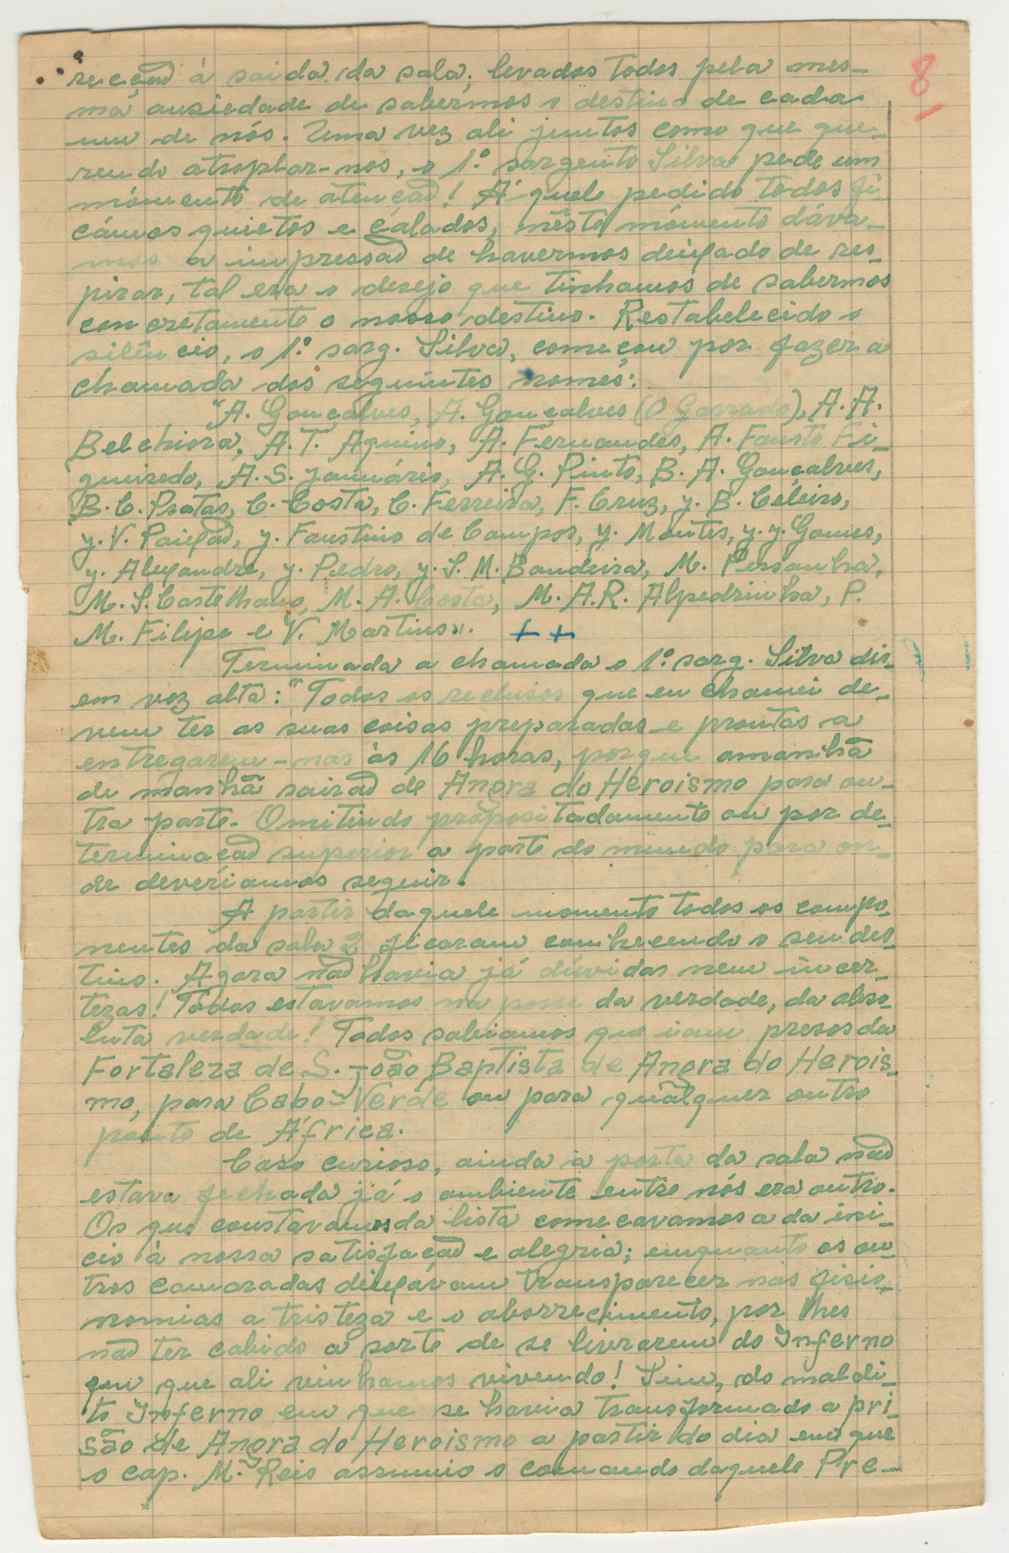 8
recção á saida da sala, levados todos pela mes-
ma ansiedade de sabermos o destino de cada
um de nós. Uma vez ali juntos como que que-
rendo atroplar-nos, o 1.º sargento Silva pede um
mómento de atenção! Áquele pedido todos fi-
cámos quietos e cálados, nésto mómento dáva-
mos a impressão de havermos deixado de res-
pirar, tal era o desejo que tinhamos de sabermos
concretamente o nosso destino. Restabelecido o
silêncio, o 1.º sarg. Silva, começou por fazer a
chamada dos seguintes nomes:
"A. Gonçalves, A. Gonçalves (O Gasrado), A. A.
Belchiora, A. T. Aquino, A. Fernandes, A. Fausto Fi-
gueiredo, A. S. Januário, A. G. Pinto, B. A. Gonçalves,
B. C. Pratas, C. Costa, C. Ferreira, F. Cruz, J. B. Céleiro,
J. V. Paixão, J. Faustino de Campos, J. Montes, J. J. Gomes,
J. Alexandre, J. Pedro, J. S. M. Bandeira, M. Pessanha,
M. S. Castelhano, M. A. Costa, M. A. R. Alpedrinha, P.
M. Filipe e V. Martins". ++
Terminada a chamada o 1.º sarg. Silva diz
em voz alta: "Todos os reclusos que eu chamei de-
vem ter as suas coisas preparadas e prontas a
entregarem-nas ás 16 horas, porque amanhã
de manhã sairão de Angra do Heroismo para ou-
tra parte. Omitindo própositadamente ou por de-
terminação superior a parte do mundo para on-
de deveriamos seguir.
A partir daquele momento todos os compo-
nentes da sala 2 ficaram conhecendo o seu des-
tino. Agora não havia já dúvidas nem incer-
tezas! Todos estavamos na posse da verdade, da abso-
luta verdade! Todos sabiamos que iam presos da
Fortaleza de S. João Baptista de Angra do Herois-
mo, para Cabo-Verde ou para qualquer outro
ponto de África.
Caso curioso, ainda a porta da sala não
estava fechada já o ambiente entre nós era outro.
Os que constavamos da lista começavamos a da ini-
cio á nossa satisfação e alegria; emquanto os ou-
tros camaradas deixávam transparecer nas fisio-
nomias a tristeza e o aborrecimento, por lhes
não ter cabido a sorte de se livrarem do Inferno
em que ali vinhamos vivendo! Sim, do maldi-
to Inferno em que se havia transformado a pri-
são de Angra do Heroismo a partir do dia em que
o cap. M. Reis assumio o comando daquele Pre-